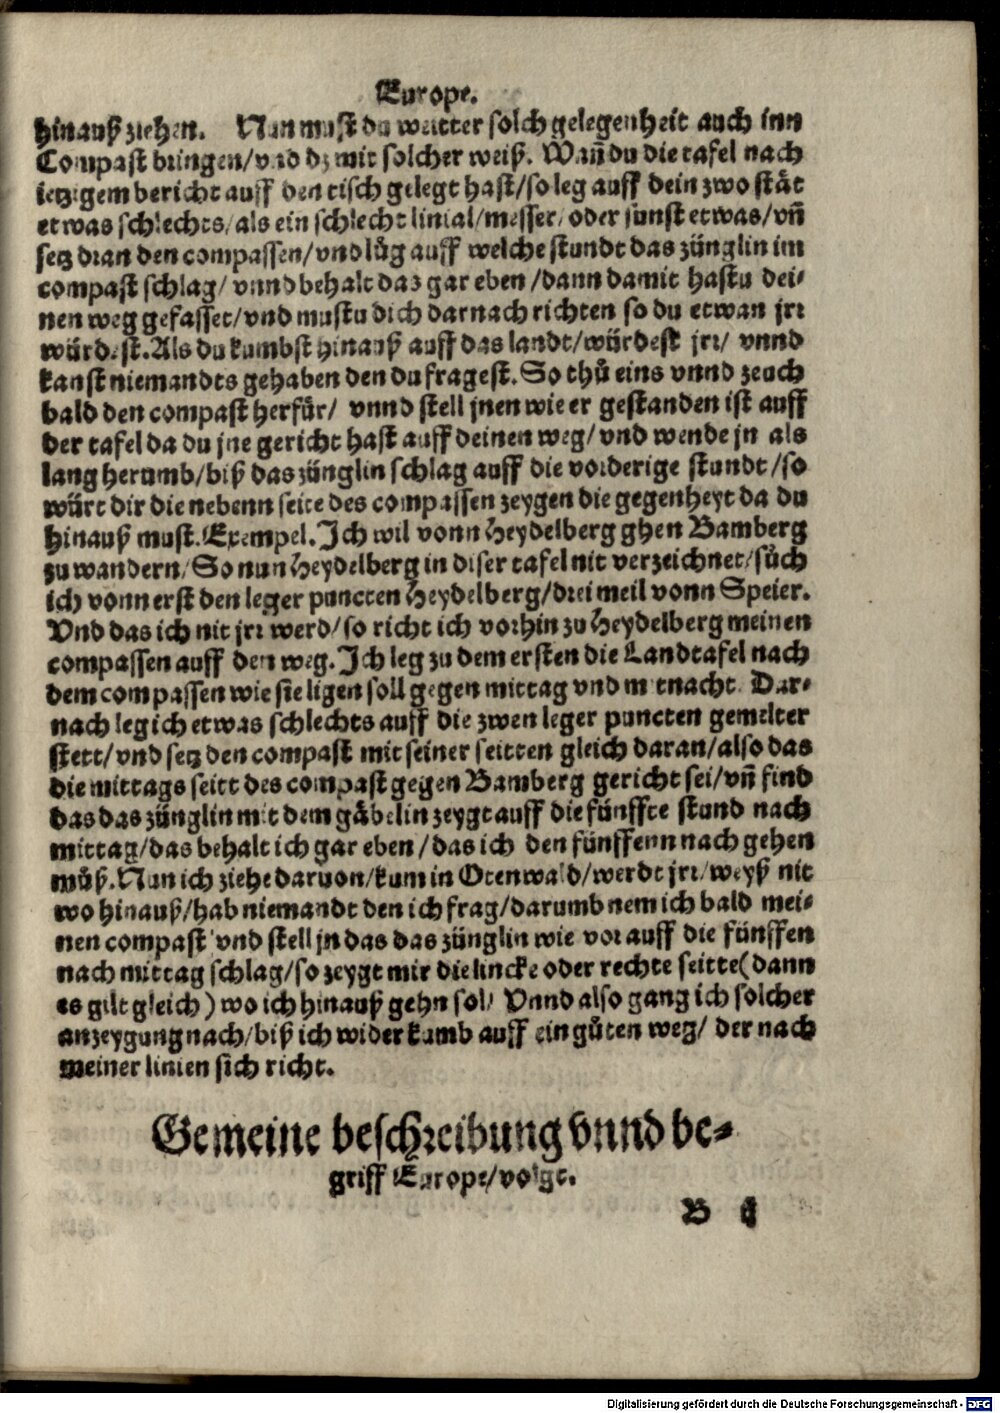 Europe.
hinauß ziehen. Nun must du weitter solch gelegenheit auch inn
Compast bringen/vnd dz mit solcher weiß. Wañ du die tafel nach
ietzigem bericht auff den tisch gelegt hast/so leg auff dein zwo stät
etwas schlechts/als ein schlecht linial/messer/oder sunst etwas/vñ
setz dran den compassen/vnd lůg auff welche stundt das zünglin im
compast schlag/vnnd behalt daz gar eben/dann damit hastu dei-
nen weg gefasset/vnd mustu dich darnach richten so du etwan jrr
würdest. Als du kumbst hinauß auff das landt/würdest jrr/ vnnd
kanst niemandts gehaben den du fragest. So thů eins vnnd zeuch
bald den compast herfür/ vnnd stell jnen wie er gestanden ist auff
der tafel da du jne gericht hast auff deinen weg/vnd wende jn als
lang herumb/biß das zünglin schlag auff die vorderige stundt/so
würt dir die nebenn seite des compassen zeygen die gegenheyt da du
hinauß must. Exempel. Ich wil vonn Heydelberg ghen Bamberg
zu wandern/So nun Heydelberg in diser tafel nit verzeichnet/sůch
ich vonn erst den leger puncten Heydelberg/drei meil vonn Speier.
Vnd das ich nit jrr werd/so richt ich vorhin zu Heydelberg meinen
compassen auff den weg. Ich leg zu dem ersten die Landtafel nach
dem compassen wie sie ligen soll gegen mittag vnd mitnacht. Dar-
nach leg ich etwas schlechts auff die zwen leger puncten gemelter
stett/vnd setz den compast mit seiner seitten gleich daran/also das
die mittags seitt des compast gegen Bamberg gericht sei/vñ find
das das zünglin mit dem gäbelin zeygt auff die fünffte stund nach
mittag/das behalt ich gar eben/das ich den fünffenn nach gehen
můß. Nun ich ziehe daruon/kum in Otenwald/werdt jrr/weyß nit
wo hinauß/hab niemandt den ich frag/darumb nem ich bald mei-
nen compast vnd stell jn das das zünglin wie vor auff die fünffen
nach mittag schlag/so zeygt mir die lincke oder rechte seitte(dann
es gilt gleich) wo ich hinauß gehn sol/ Vnnd also gang ich solcher
anzeygung nach/biß ich wider kumb auff ein gůten weg/ der nach
meiner linien sich richt.
Gemeine beschreibung vnnd be-
griff Europe/volgt.
B ij
Digitalisierung gefördert durch die Deutsche Forschungsgemeinschaft - DFG